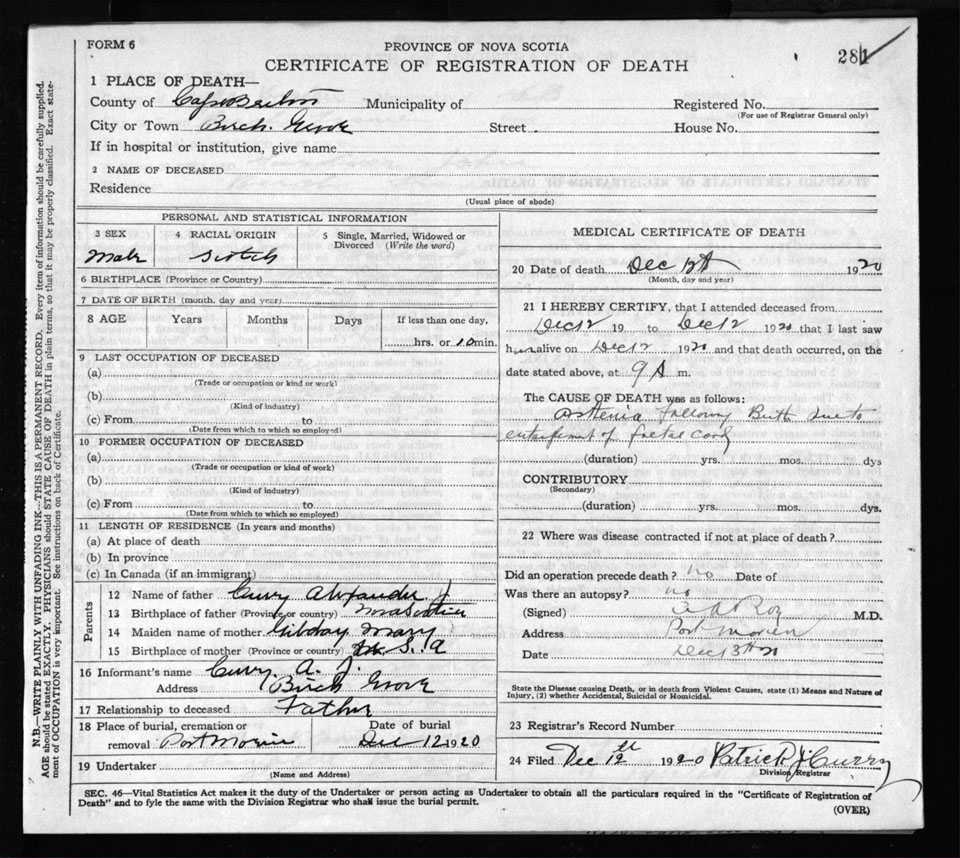 FORM 6
PROVINCE OF NOVA SCOTIA
CERTIFICATE OF REGISTRATION OF DEATH
281
1 PLACE OF DEATH—
County of Cape Breton Municipality of Registered No.
(For use of Registrar General only)
City or Town Birch Grove Street House No.
If in hospital or institution, give name
2 NAME OF DECEASED
Residence
(Usual place of abode)
PERSONAL AND STATISTICAL INFORMATION
3 SEX 4 RACIAL ORIGIN 5 Single, Married, Widowed or Divorced (Write the word)
Male Scotch
6 BIRTHPLACE (Province or Country)
7 DATE OF BIRTH (month, day and year)
8 AGE Years Months Days If less than one day,
hrs. or 10 min.
9 LAST OCCUPATION OF DECEASED
(a)
(Trade or occupation or kind or work)
(b)
(Kind of industry)
(c) From to
(Date from which to which so employed)
10 FORMER OCCUPATION OF DECEASED
(a)
(Trade or occupation or kind of work)
(b)
(Kind of industry)
(c) From to
(Date from which to which so employed)
11 LENGTH OF RESIDENCE (In years and months)
(a) At place of death
(b) In province
(c) In Canada (if an immigrant)
Parents
12 Name of father Curry Alexander J.
13 Birthplace of father (Province or country) Nova Scotia
14 Maiden name of mother Mary
15 Birthplace of mother (Province or country) U.S.A
16 Informant's name Curry A. J.
Address Birch Grove
17 Relationship to deceased Father
18 Place of burial, cremation or Date of burial
removal Port Morien Dec 12 1920
19 Undertaker
(Name and Address)
MEDICAL CERTIFICATE OF DEATH
20 Date of death Dec 12th 1920
(Month, day and year)
21 I HEREBY CERTIFY, that I attended deceased from
Dec 12 19 to Dec 12 1920 that I last saw
him alive on Dec 12 1920 and that death occurred, on the
date stated above, at 9 A m.
The CAUSE OF DEATH was as follows:
Asthenia following Birth due to
of foetal cord
(duration) yrs. mos. dys
CONTRIBUTORY
(Secondary)
(duration) yrs. mos. dys.
22 Where was disease contracted if not at place of death?
Did an operation precede death? no Date of
Was there an autopsy? no
(Signed) Roy M.D.
Address Port Morien
Date Dec 13th 20
State the Disease causing Death, or in death from Violent Causes, state (1) Means and Nature of
Injury, (2) whether Accidental, Suicidal or Homicidal.
23 Registrar's Record Number
24 Filed Dec 12th 1920 Patrick J Curry
Division Registrar
SEC. 46—Vital Statistics Act makes it the duty of the Undertaker or person acting as Undertaker to obtain all the particulars required in the "Certificate of Registration of
Death" and to fyle the same with the Division Registrar who shall issue the burial permit.
(OVER)
N.B.—WRITE PLAINLY WITH UNFADING INK—THIS IS A PERMANENT RECORD. Every item of information should be carefully supplied.
AGE should be stated EXACTLY. PHYSICIANS should STATE CAUSE OF DEATH in plain terms, so that it may be properly classified. Exact state-
ment of OCCUPATION is very important. See instructions on back of Certificate.